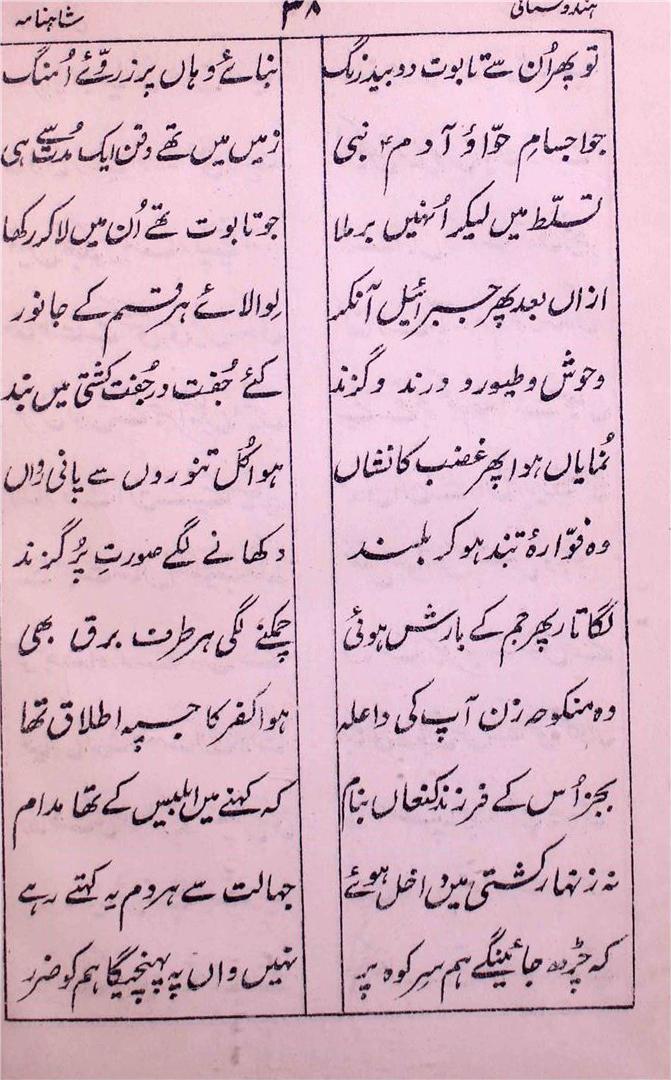 ہندوستانی ۳۸ شاہنامہ
تو پھر اُن سے تابوت دو بیدزنگ بنائے وہاں پر ز روّئے اُمنگ
جو اجسامِ حوّا ؤ آدم ؑ نبی زمیں میں تھے دفن ایک مدت سے ہی
تسلّط میں لیکر اُنہیں برملا جو تابوت تھے اُن میں لا کر رکھا
ازاں بعد پھر جبرائیل آنکر لِوالائے ہر قسم کے جانور
وحوش و طیور و درند و گزند کئے جُفت در جُفت کشتی میں بند
نُمایاں ہوا پھر غضب کا نشاں ہوا کُل تنوروں سے پانی رواں
وہ فوّارۂ تند ہو کر بلند دکھانے لگے صورتِ پُر گزند
لگاتار پھر جم کے بارش ہوئی چمکنے لگی ہر طرف برق بھی
وہ منکوحہ زن آپ کی داعلہ ہوا کفر کا جسپہ اطلاق تھا
بجز اُس کے فرزند کنعاں بنام کہ کہنے میں ابلیس کے تھا مدام
نہ زنہار کشتی میں داخل ہوئے جہالت سے ہر دم یہ کہتے رہے
کہ چڑھ جائینگے ہم سرِ کوہ پر نہیں واں پہ پہنچیگا ہم کو ضرر